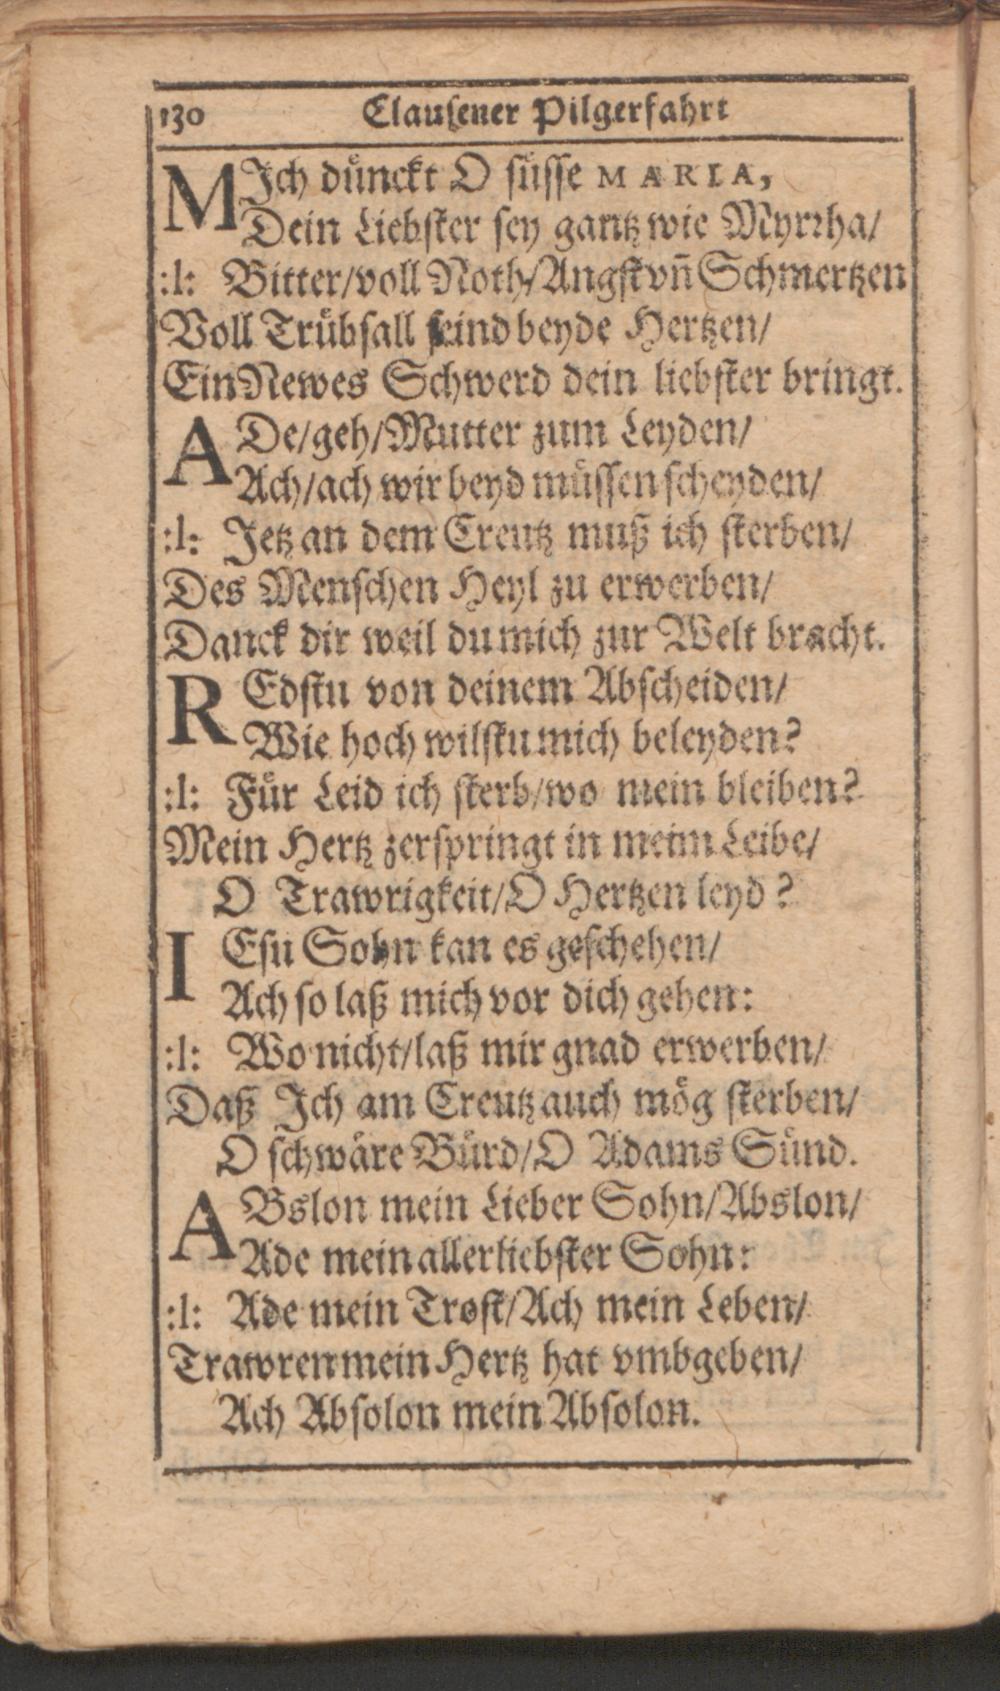 130 Clauſener Pilgerfahrt
MIch dünckt O ſüſſe MARIA,
Dein Liebſter ſey gantz wie Myrrha/
:l: Bitter/voll Noth/Angſt vñ Schmertzen
Voll Trübſall ſeind beyde Hertzen/
Ein Newes Schwerd dein liebſter bringt.
ADe/geh/Mutter zum Leyden/
Ach/ach wir beyd müſſen ſcheyden/
:l: Jetz an dem Creutz muß ich ſterben/
Des Menſchen Heyl zu erwerben/
Danck dir weil du mich zur Welt bracht.
REdſtu von deinem Abſcheiden/
Wie hoch wilſtu mich beleyden?
:l: Für Leid ich ſterb/wo mein bleiben?
Mein Hertz zerſpringt in meim Leibe/
O Trawrigkeit/O Hertzen leyd?
IEſu Sohn kan es geſchehen/
Ach ſo laß mich vor dich gehen:
:l: Wo nicht/laß mir gnad erwerben/
Daß Ich am Creutz auch mög ſterben/
O ſchwäre Bürd/O Adams Sünd.
ABslon mein Lieber Sohn/Abslon/
Ade mein allerliebſter Sohn:
:l: Ade mein Troſt/Ach mein Leben/
Trawren mein Hertz hat vmbgeben/
Ach Abſolon mein Abſolon.